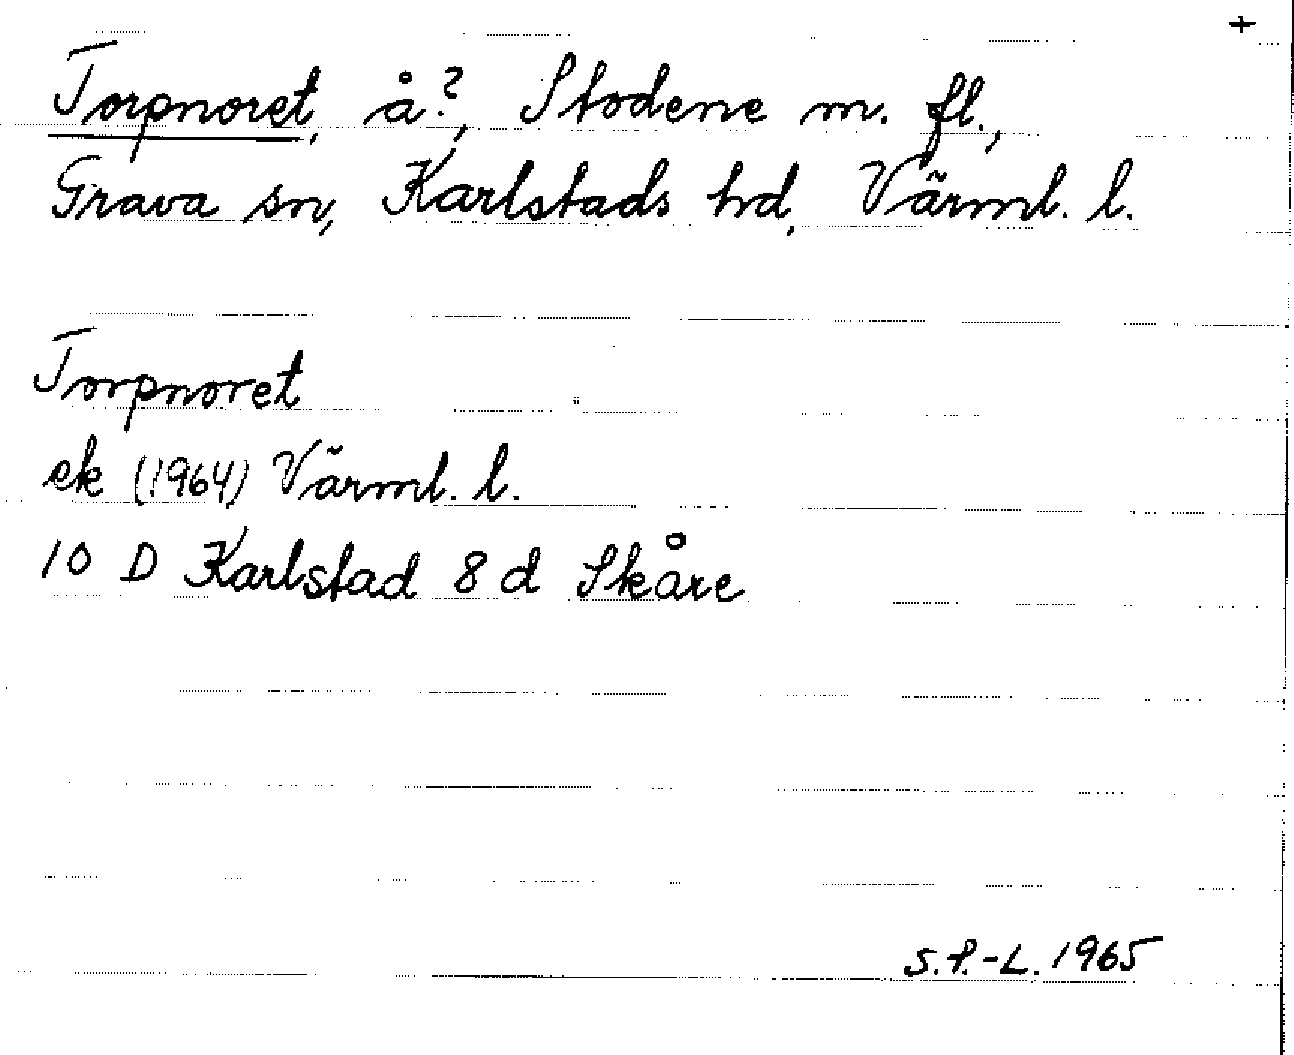 +
Torpnoret, å?, Stodene m. fl.,
Grava sn, Karlstads hd, Värml. l.
Torpnoret
ek (1964) Värml. l.
10 D Karlstad 8 d Skåre
S.P.-L. 1965